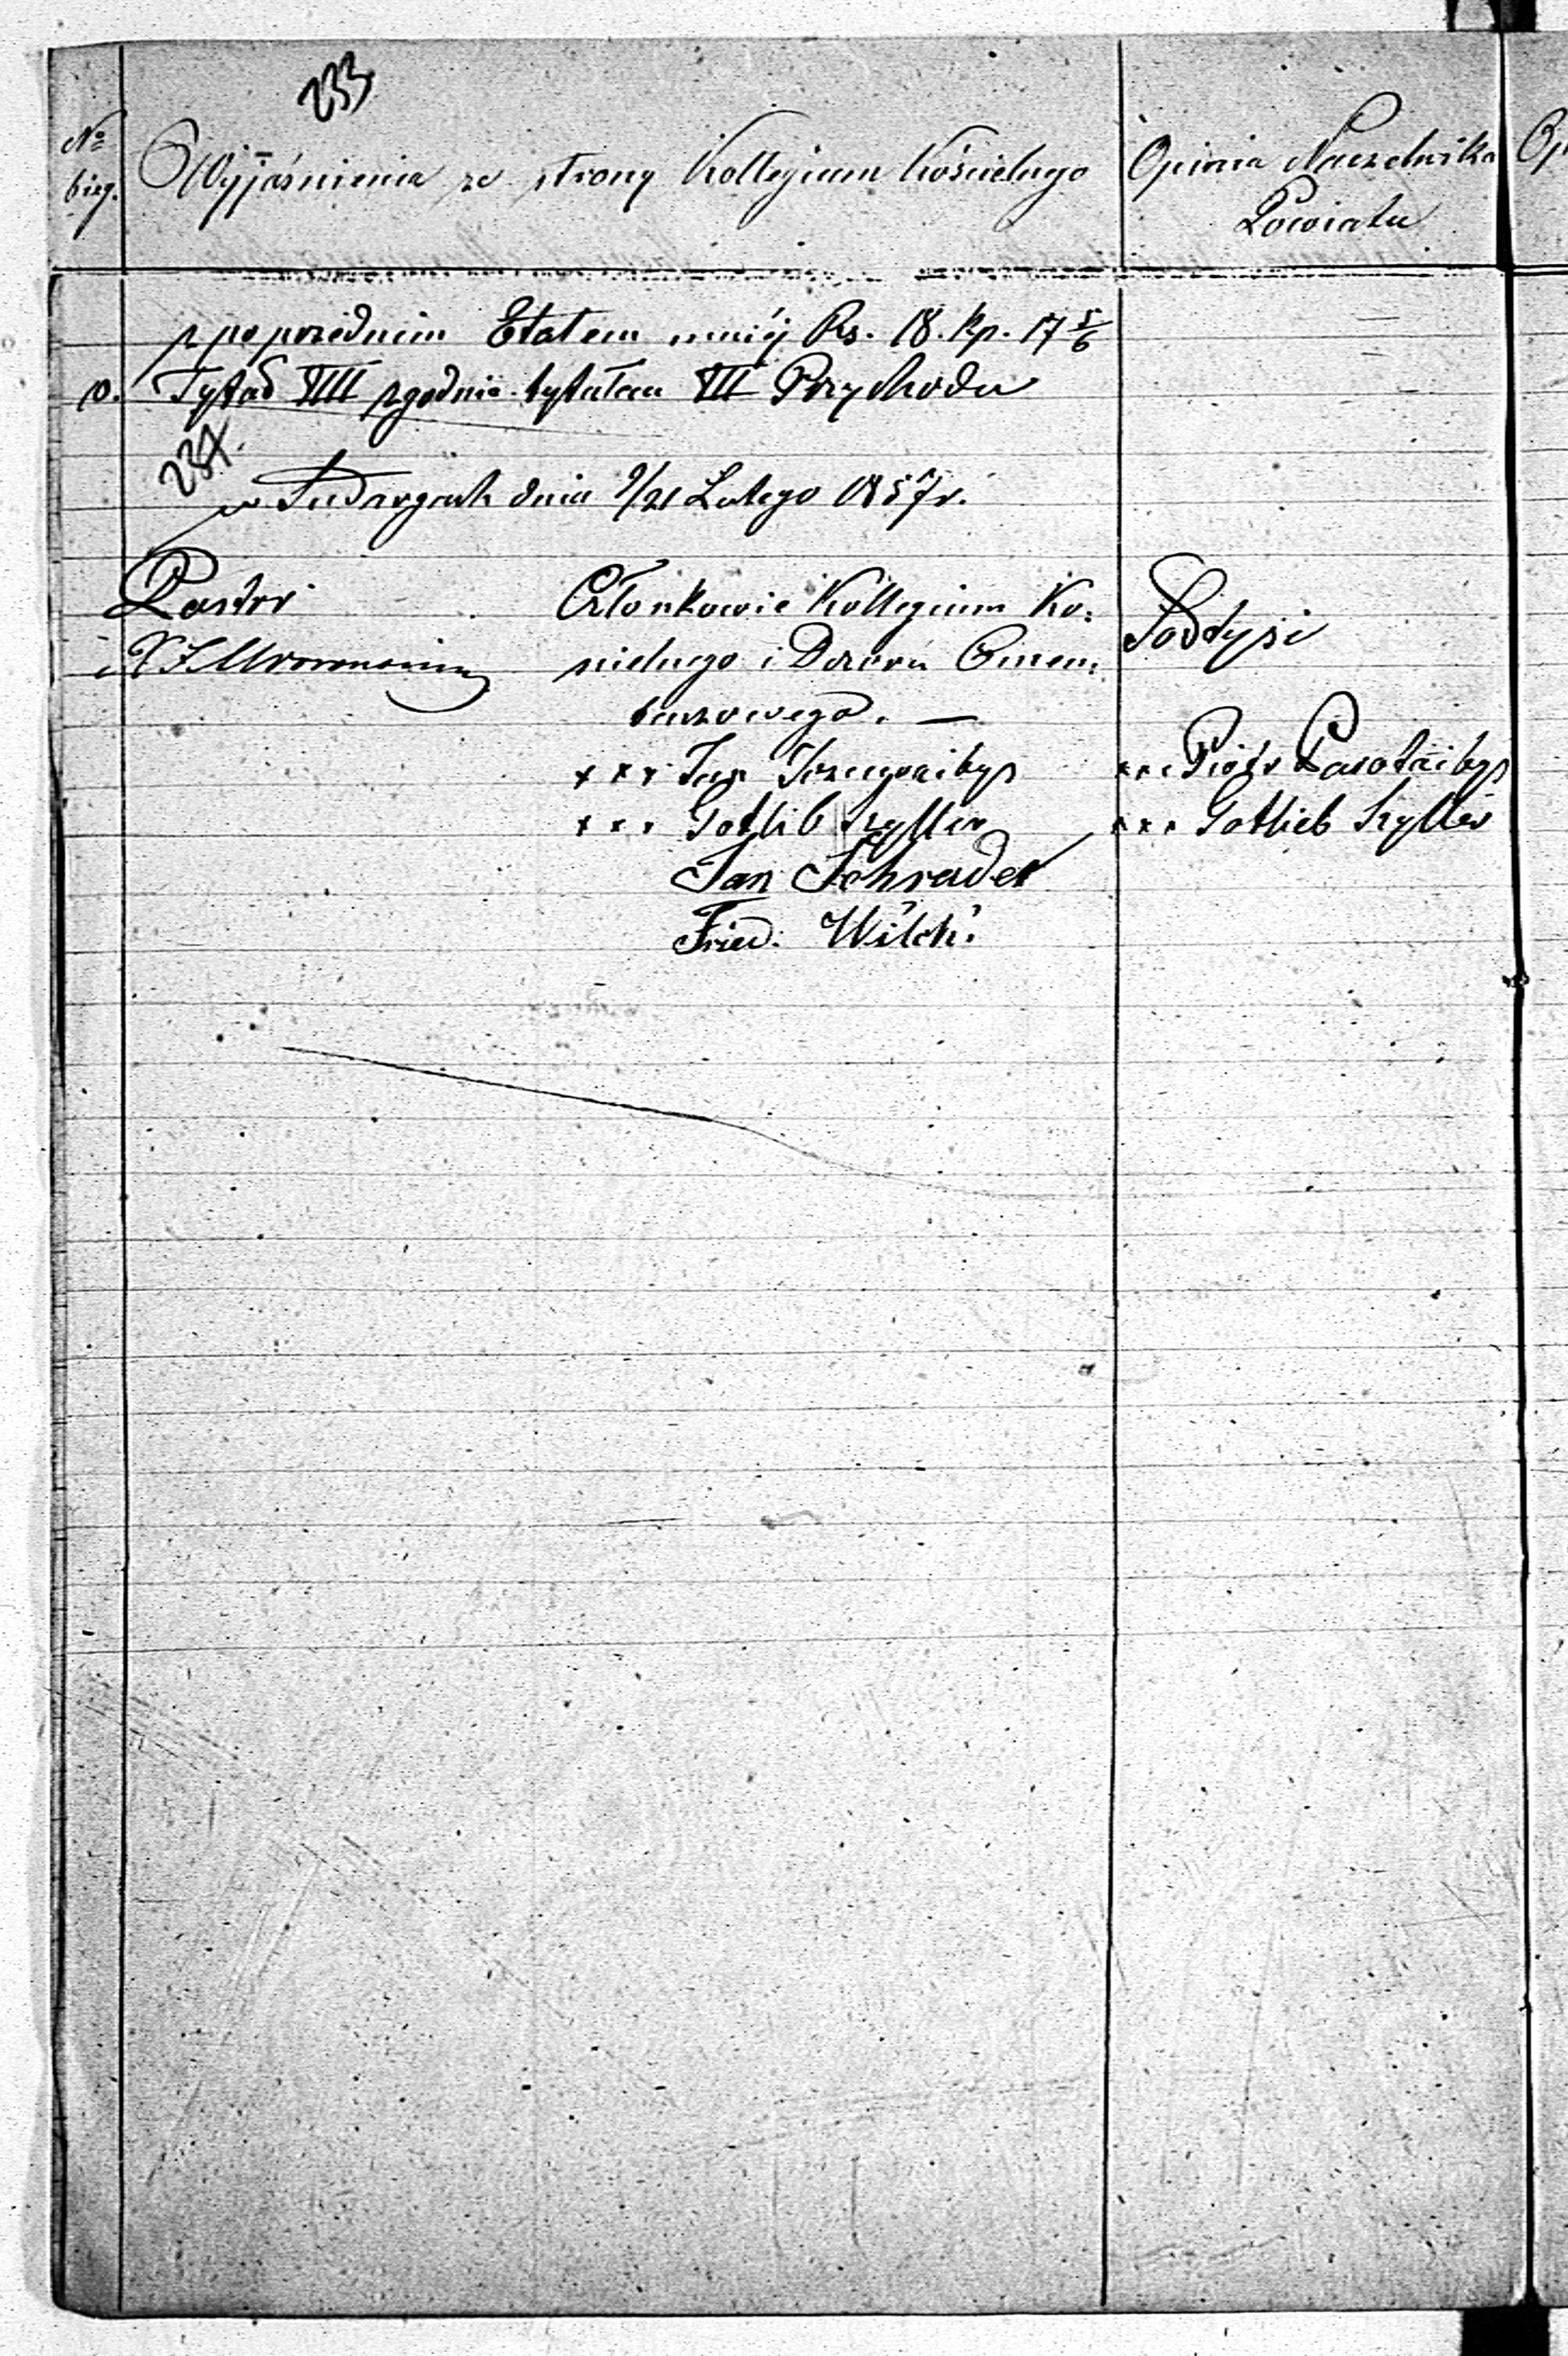 233
No bieg.
Wyjaśnienia ze strony Kollegium Kościelnego
Opinia Naczelnika
Powiatu
z poprzednim Etatem mniéj Rs. 18. kp. 17 5/6
10. Tytuł VIII zgodnie tytułem VII Przychodu
237.
w Sudargach dnia 9/21 Lutego 1857 r.
Pastor
Członkowie Kollegium Ko-
ścielnego i Dozoru Cmen-
tarzowego. —
xxx Jan
xxx Gotlib Szyller
Jan Schrader
Fried. Wilch.
Sołtysi
xxx Piotr
xxx Gottlieb Szyller